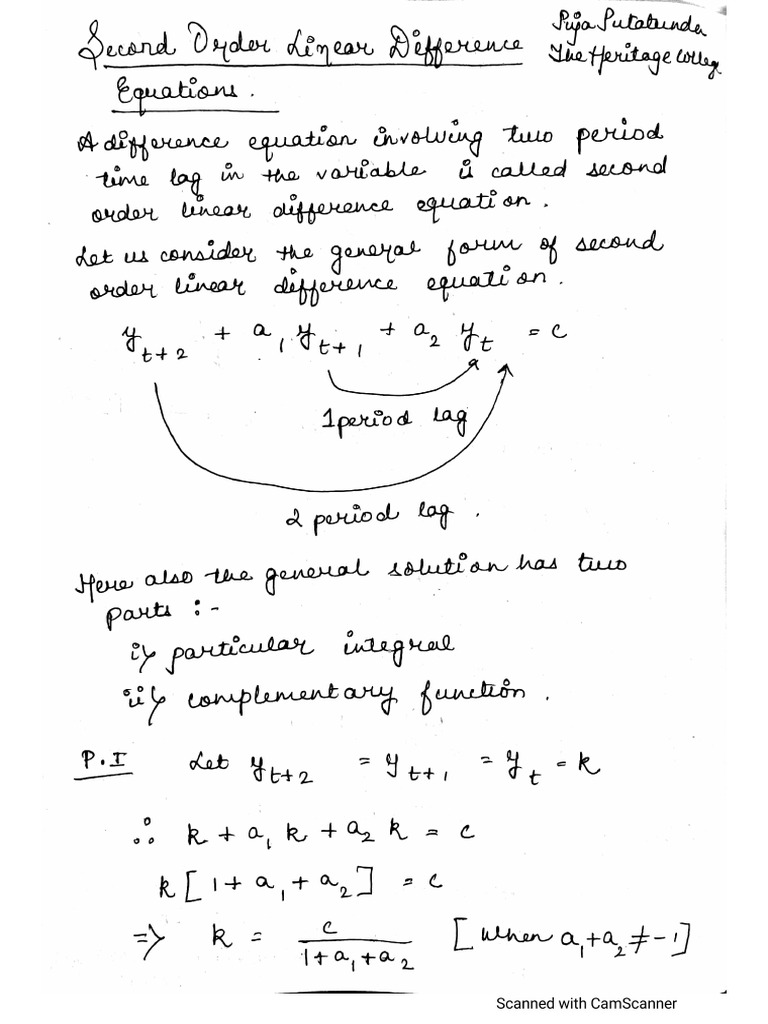 Second Order Linear Difference
Equations.
Puja Putatunda
The Heritage College
A difference equation involving two period
time lag in the variable is called second
order linear difference equation.
Let us consider the general form of second
order linear difference equation.
y_{t+2} + a_1 y_{t+1} + a_2 y_t = c
1 period lag
2 period lag.
Here also the general solution has two
parts :-
i) particular integral
ii) complementary function.
P.I Let y_{t+2} = y_{t+1} = y_t = k
∴ k + a_1 k + a_2 k = c
k[1 + a_1 + a_2] = c
=> k = c / (1 + a_1 + a_2) [when a_1 + a_2 ≠ -1]
Scanned with CamScanner